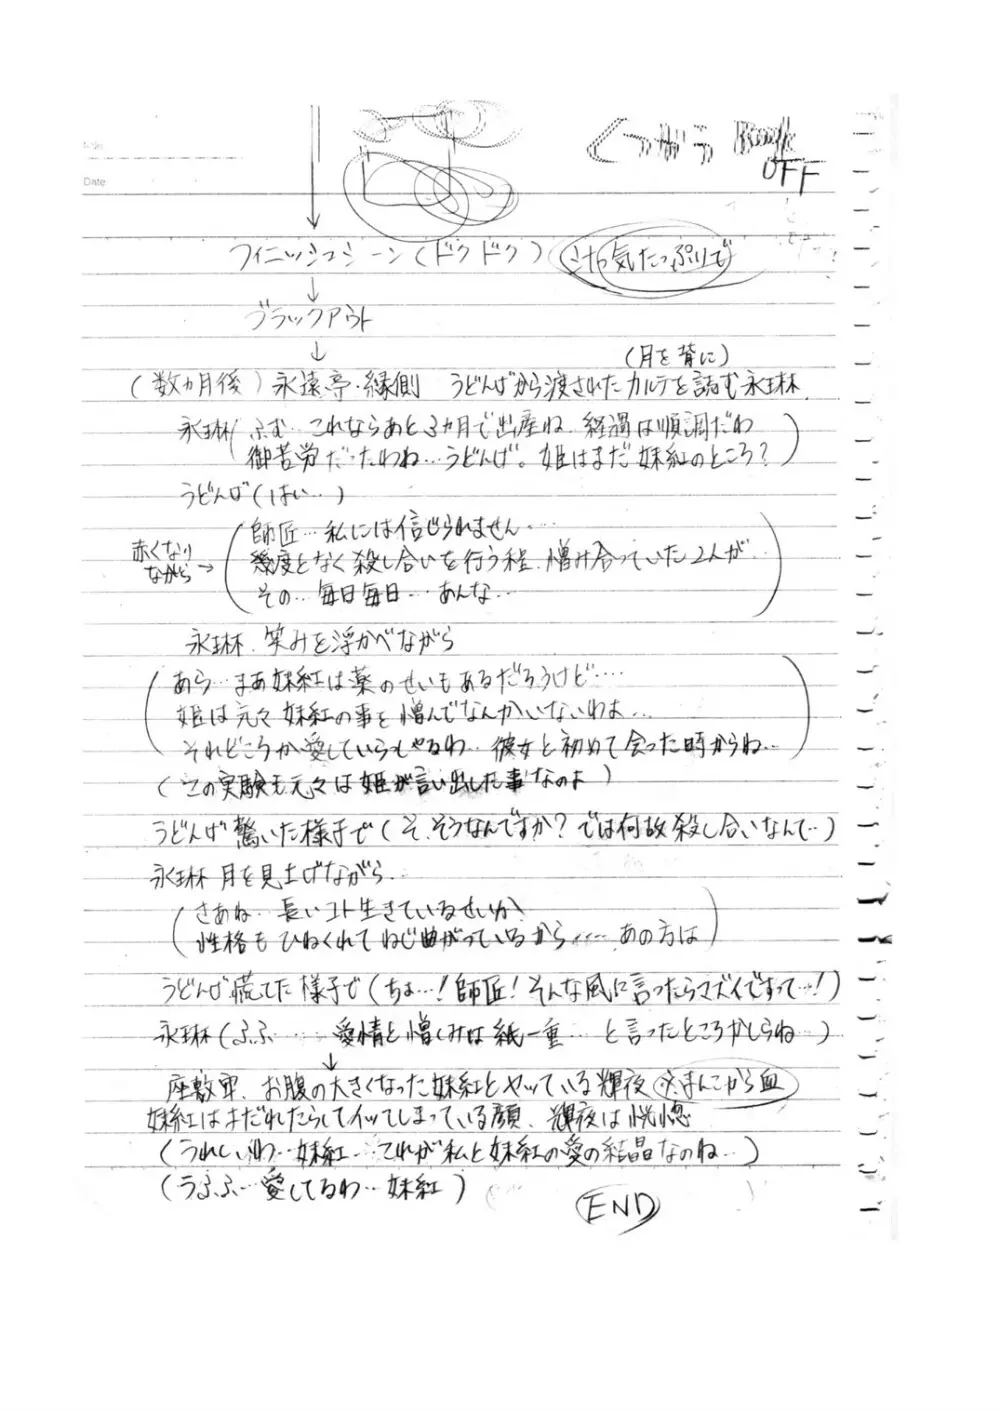 Date
OFF
フィニッシュシーン(ドクドク) 汁っ気たっぷりで
ブラックアウト
(月を背に)
(数カ月後)永遠亭・縁側 うどんげから渡されたカルテを読む永琳
永琳(ふむ…これならあと3カ月で出産ね…経過は順調だわ
御苦労だったわね…うどんげ。姫はまだ妹紅のところ?)
うどんげ(はい…)
赤くなり
ながら→
(師匠…私には信じられません…
幾度となく殺し合いを行う程、憎み合っていた2人が、
その…毎日毎日…あんな…)
永琳、笑みを浮かべながら
(あら…まあ妹紅は薬のせいもあるだろうけど…
姫は元々妹紅の事を憎んでなんかいないわよ…
それどころか愛していらっしゃるわ…彼女と初めて会った時からね…)
(この実験も元々は姫が言い出した事なのよ)
うどんげ驚いた様子で(そ、そうなんですか?では何故殺し合いなんて…)
永琳 月を見上げながら…
(さあね…長いコト生きているせいか、
性格もひねくれてねじ曲がっているから……あの方は)
うどんげ慌てた様子で(ちょ…!師匠!そんな風に言ったらマズイですって…!)
永琳(ふふ……愛情と憎しみは紙一重…と言ったところかしらね…)
座敷牢、お腹の大きくなった妹紅とヤッている輝夜 ※まんこから血
妹紅はよだれたらしてイッてしまっている顔、輝夜は恍惚
(うれしいわ…妹紅…これが私と妹紅の愛の結晶なのね…)
(うふふ…愛してるわ…妹紅)
END